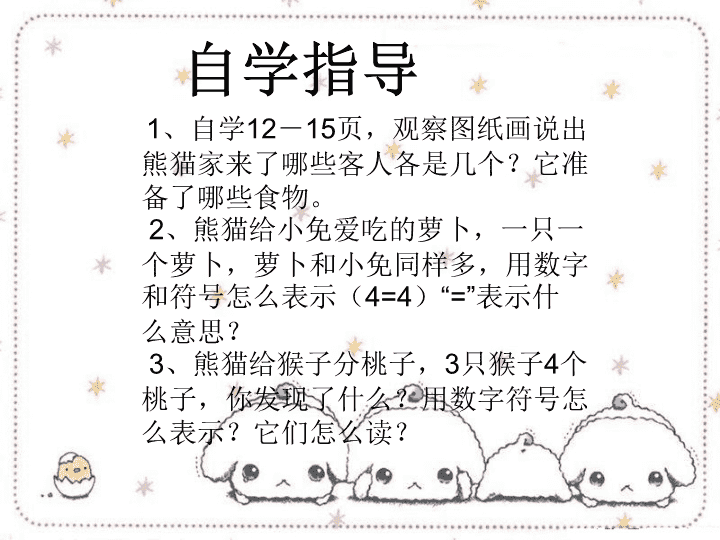 自学指导
1、自学12－15页，观察图纸画说出
熊猫家来了哪些客人各是几个？它准
备了哪些食物。
2、熊猫给小免爱吃的萝卜，一只一
个萝卜，萝卜和小免同样多，用数字
和符号怎么表示（4=4）“=”表示什
么意思？
3、熊猫给猴子分桃子，3只猴子4个
桃子，你发现了什么？用数字符号怎
么表示？它们怎么读？